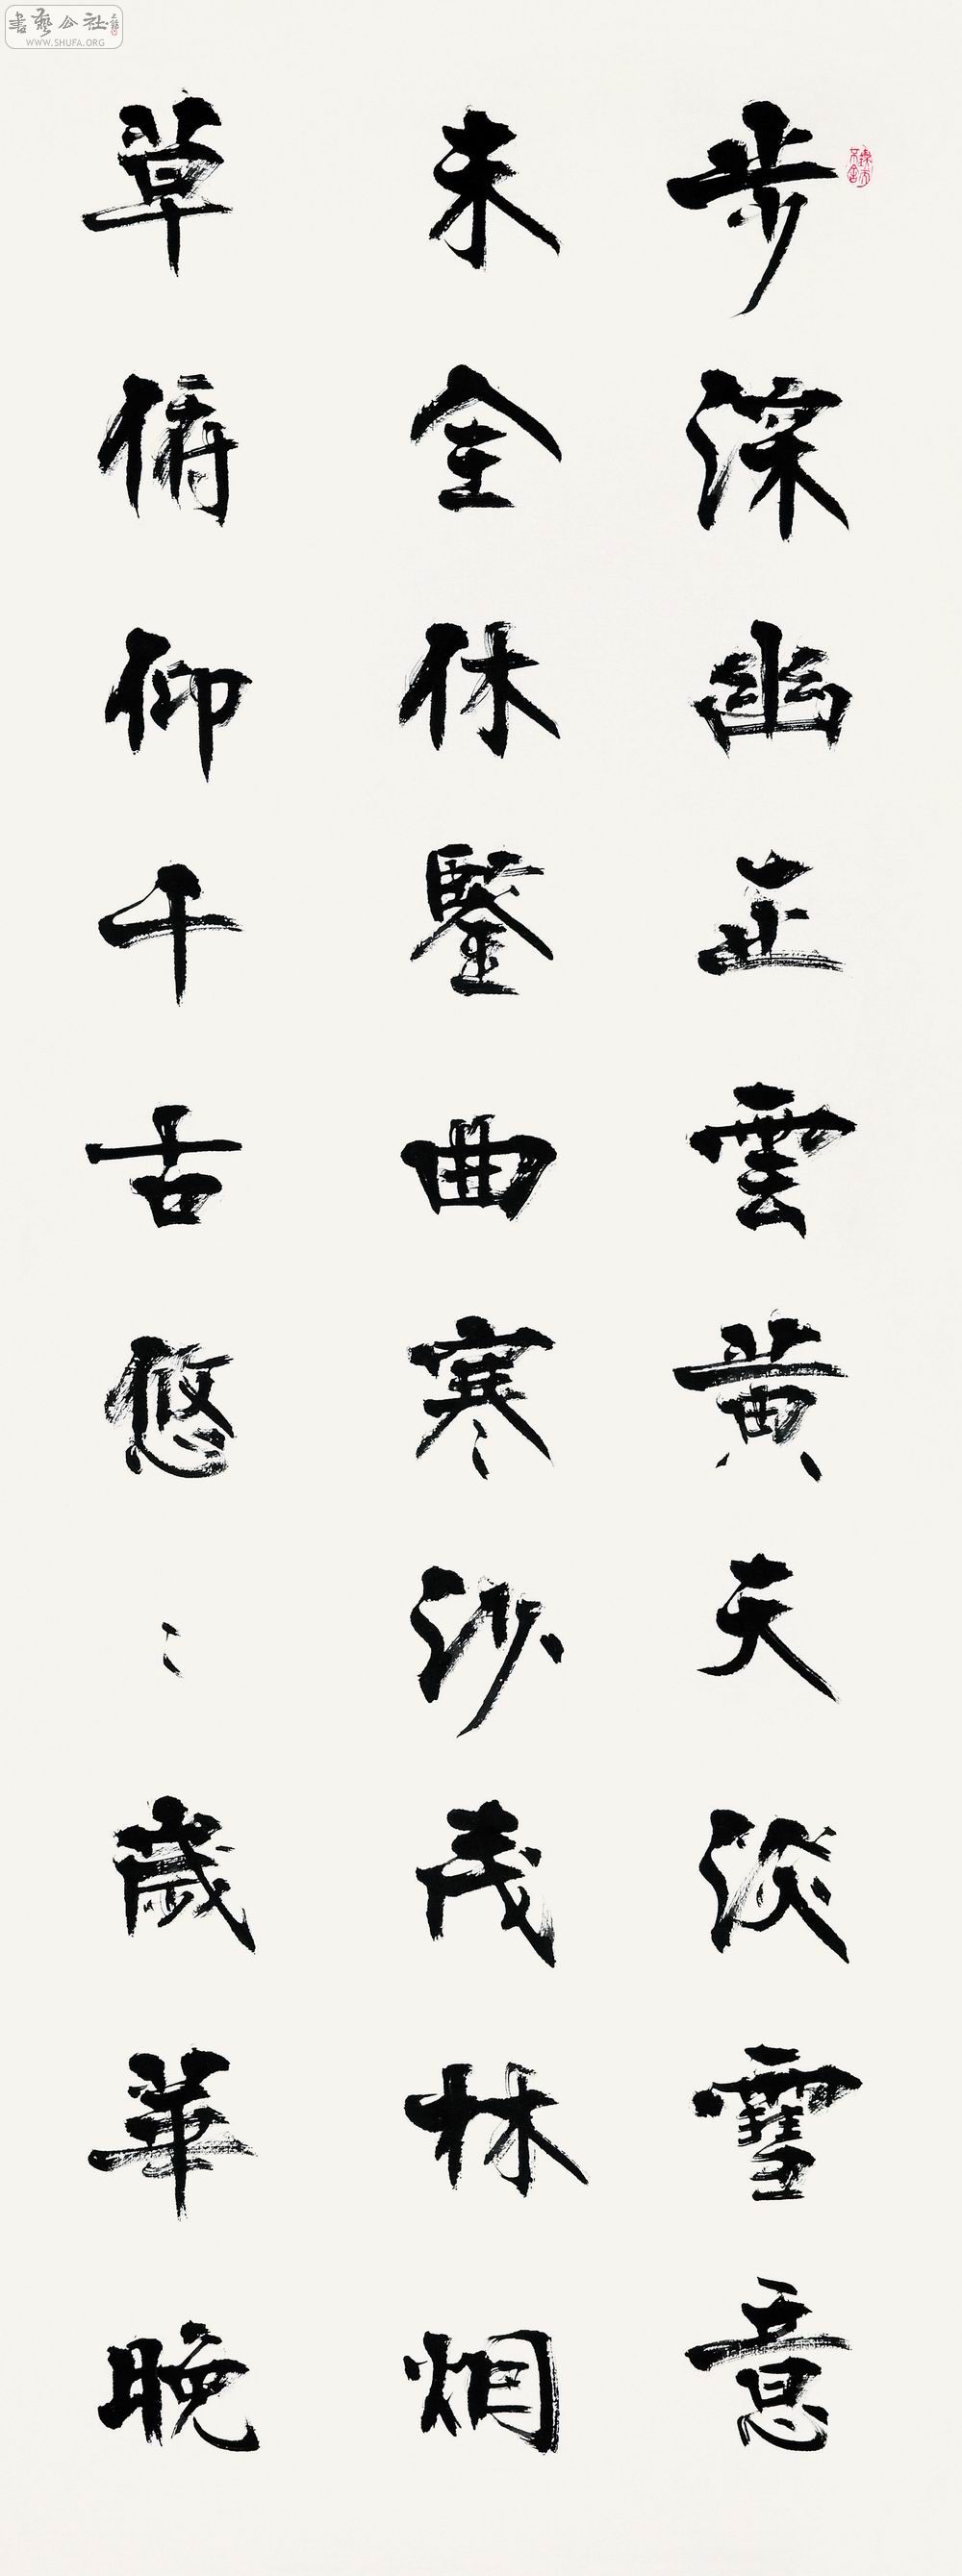 步深幽正雲黄天淡雪意
未全休鑒曲寒沙茂林烟
草俯仰千古悠〻歲華晚
書藝公社
WWW.SHUFA.ORG